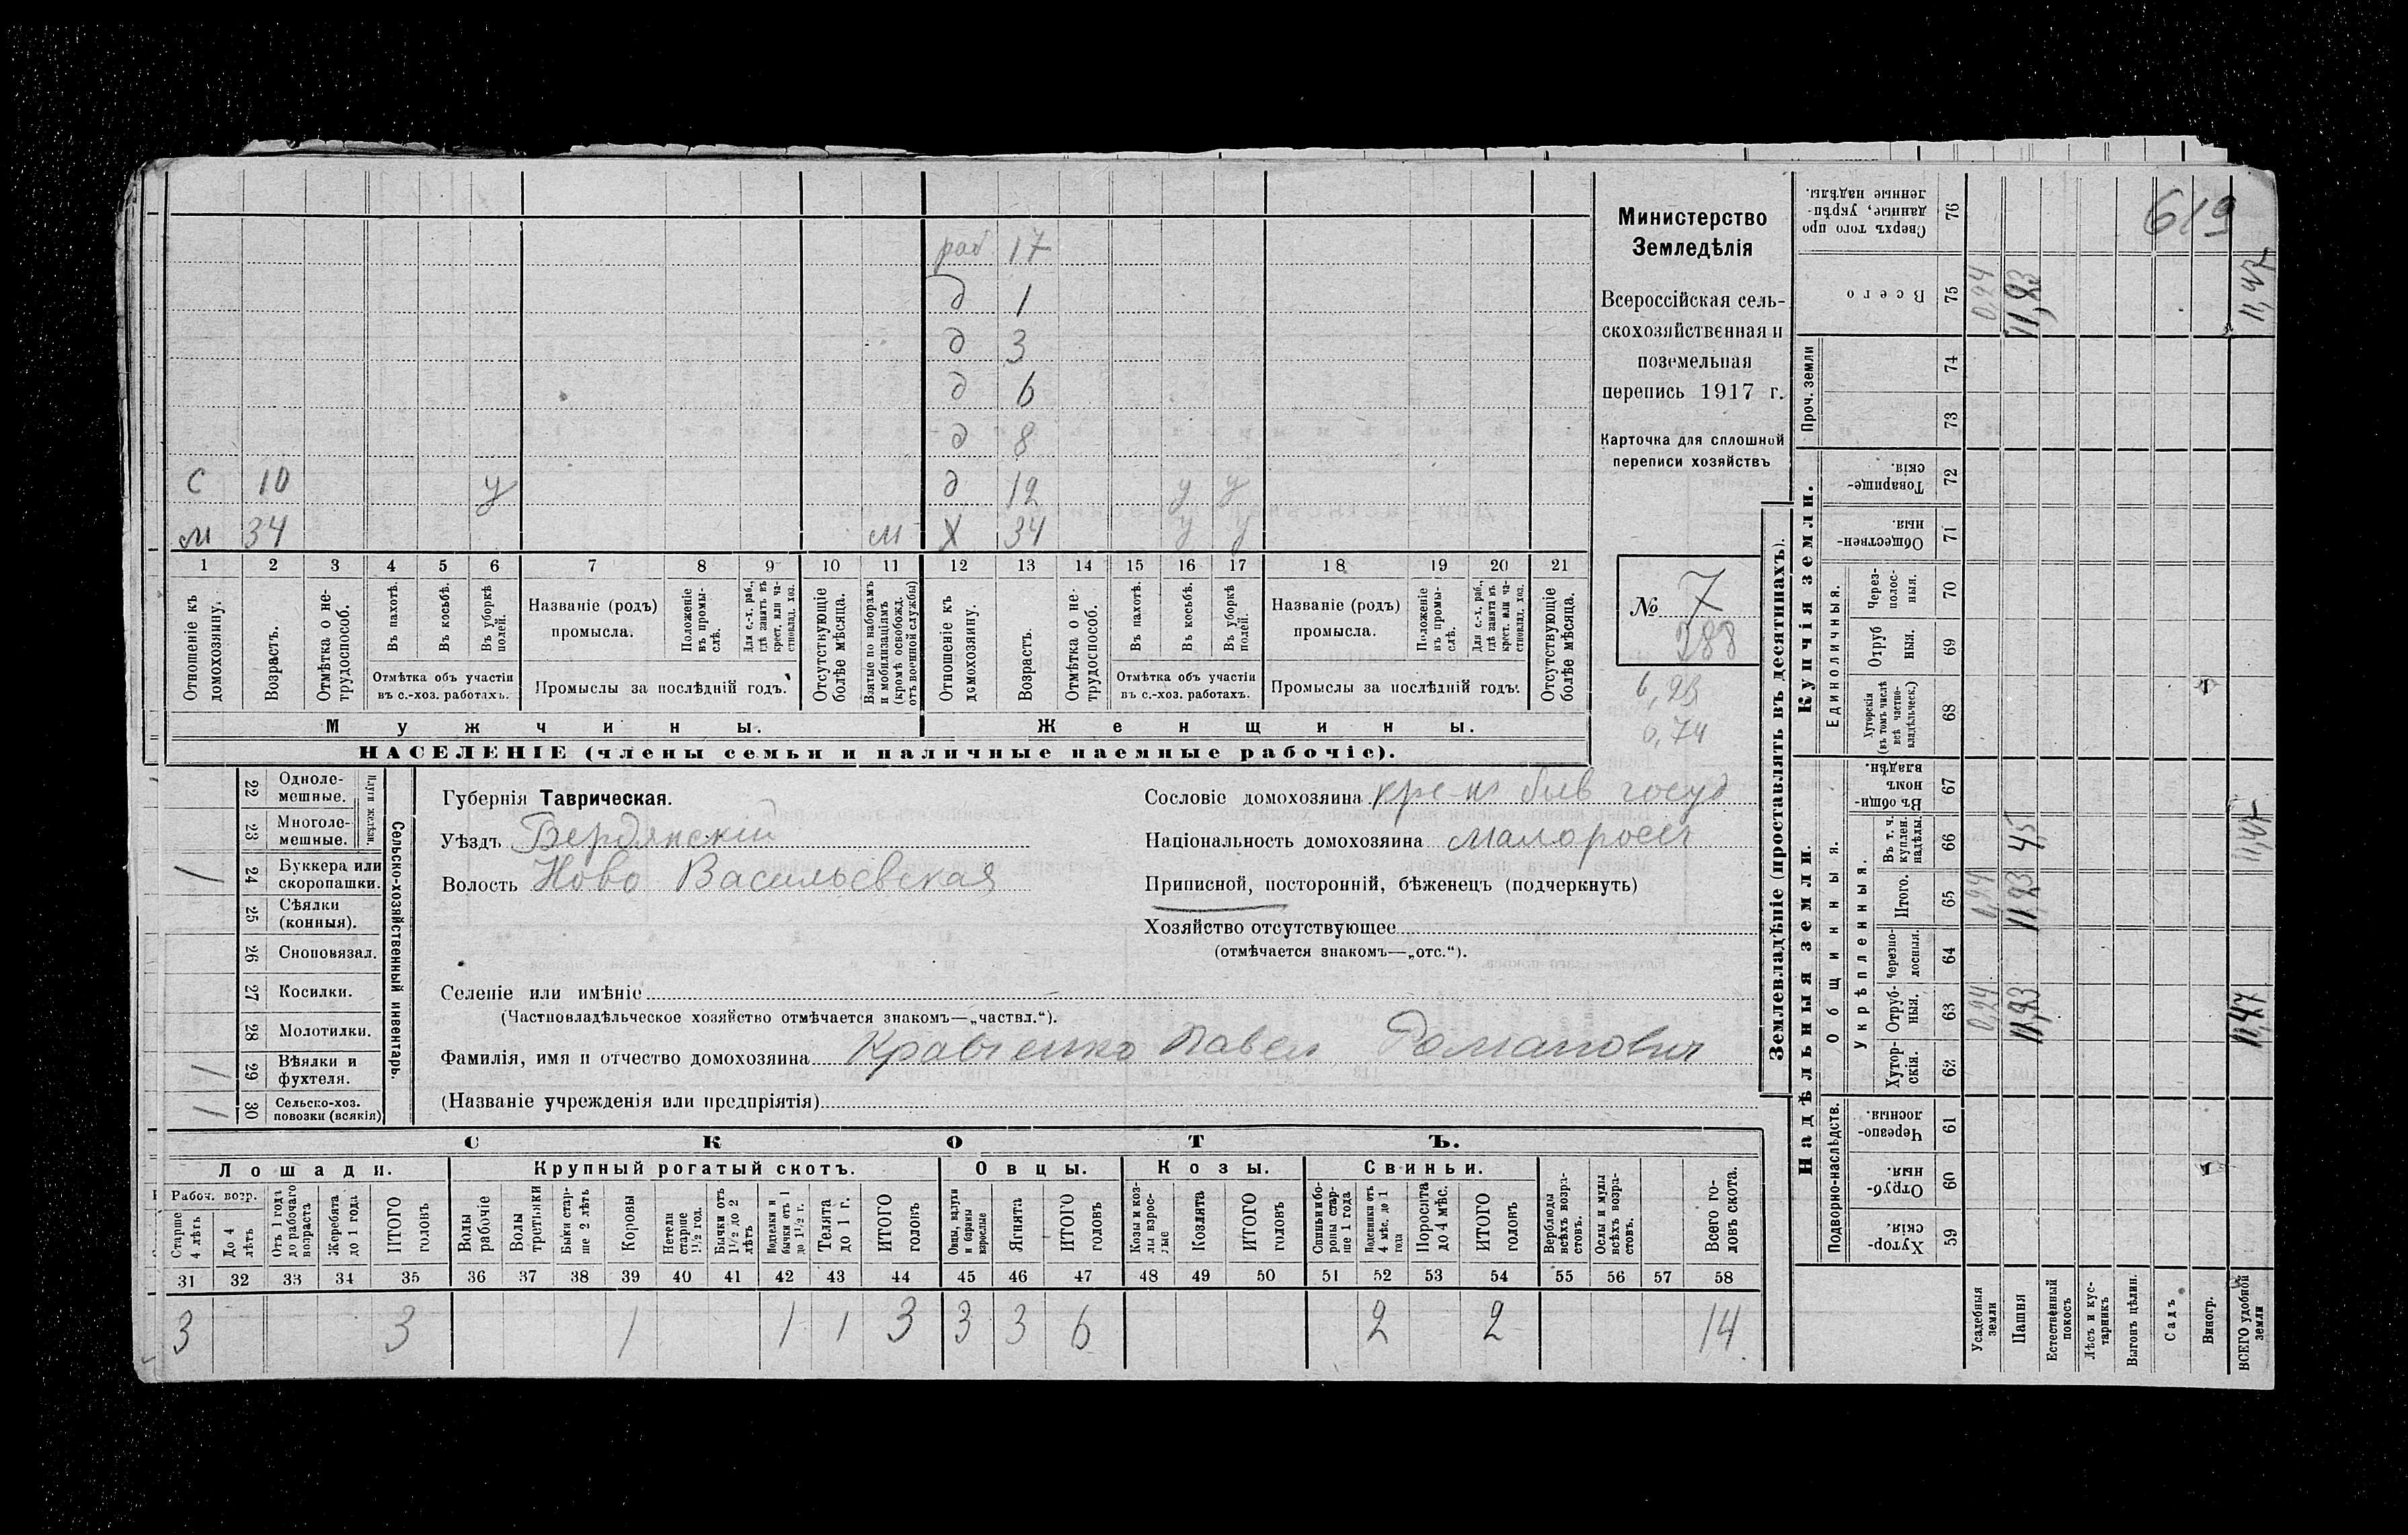 619
раб 17
д 1
д 3
д 6
д 8
с 10 у д 12 у у
м 34 м х 34 у у
1 2 3 4 5 6 7 8 9 10 11 12 13 14 15 16 17 18 19 20 21
Отношеніе къ домохозяину.
Возрастъ.
Отмѣтка о не-трудоспособ.
Въ пахотѣ.
Въ косьбѣ.
Въ уборкѣ полей.
Отмѣтка объ участіи
въ с.-хоз. работахъ.
Названіе (родъ)
промысла.
Положеніе въ промы-слѣ.
Для с.-х. раб., гдѣ занятъ въ крест. или ча-стновлад. хоз.
Промыслы за послѣдній годъ.
Отсутствующіе болѣе мѣсяца.
Взятые по наборамъ и мобилизаціямъ (кромѣ освобожд. отъ военной службы)
Отношеніе къ домохозяину.
Возрастъ.
Отмѣтка о не-трудоспособ.
Въ пахотѣ.
Въ косьбѣ.
Въ уборкѣ полей.
Отмѣтка объ участіи
въ с.-хоз. работахъ.
Названіе (родъ)
промысла.
Положеніе въ промы-слѣ.
Для с.-х. раб., гдѣ занята въ крест. или ча-стновлад. хоз.
Промыслы за послѣдній годъ.
Отсутствующіе болѣе мѣсяца.
Мужчины. Женщины.
НАСЕЛЕНІЕ (члены семьи и наличные наемные рабочіе).
Министерство
Земледѣлія
Всероссійская сель-
скохозяйственная и
поземельная
перепись 1917 г.
Карточка для сплошной
переписи хозяйствъ
№ 7
288
6,23
0,74
Сельско-хозяйственный инвентарь.
Плуги желѣзн.
22 Одноле-мешные.
23 Многоле-мешные.
1 24 Буккера или скоропашки.
25 Сѣялки (конныя).
26 Сноповязал.
27 Косилки.
28 Молотилки.
1 29 Вѣялки и фухтеля.
1 30 Сельско-хоз. повозки (всякія)
Губернія Таврическая.
Уѣздъ Бердянскій
Волость Ново Васильевская
Сословіе домохозяина кре-нъ быв госуд
Національность домохозяина малоросс
Приписной, посторонній, бѣженецъ (подчеркнуть)
Хозяйство отсутствующее
(отмѣчается знакомъ—„отс.“).
Селеніе или имѣніе
(Частновладѣльческое хозяйство отмѣчается знакомъ—„частвл.“).
Фамилія, имя и отчество домохозяина Кравченко Павел Романович
(Названіе учрежденія или предпріятія)
СКОТЪ.
Лошади. Крупный рогатый скотъ. Овцы. Козы. Свиньи.
Рабоч. возр.
Старше 4 лѣтъ
До 4 лѣтъ
Отъ 1 года до рабочаго возраста
Жеребята до 1 года
ИТОГО головъ
Волы рабочіе
Волы третьяки
Быки стар-ше 2 лѣтъ
Коровы
Нетели старше 1½ год.
Бычки отъ 1½ до 2 лѣтъ
Подтелки и бычки отъ 1 до 1½ г.
Телята до 1 г.
ИТОГО головъ
Овцы, валухи и бараны взрослые
Ягнята
ИТОГО головъ
Козы и коз-лы взрос-лые
Козлята
ИТОГО головъ
Свиньи и бо-ровы стар-ше 1 года
Подсвинки отъ 4 мѣс. до 1 года
Поросята до 4 мѣс.
ИТОГО головъ
Верблюды всѣхъ возра-стовъ.
Ослы и мулы всѣхъ возра-стовъ.
Всего го-ловъ скота.
31 32 33 34 35 36 37 38 39 40 41 42 43 44 45 46 47 48 49 50 51 52 53 54 55 56 57 58
3 3 1 1 1 3 3 3 6 2 2 14
Землевладѣніе (проставлять въ десятинахъ).
Надѣльныя земли.
Подворно-наслѣдств.
59 Хутор-скія.
60 Отруб-ныя.
61 Черезпо-лосныя.
Общинныя.
Укрѣпленныя.
62 Хутор-скія.
63 Отруб-ныя. 0,24 11,23 11,47
64 Черезпо-лосныя.
65 Итого. 0,24 11,23
66 Въ т. ч. куплен. надѣлы. 45 11,47
67 Въ общин-номъ владѣн.
Купчія земли.
Единоличныя.
68 Хуторскія (въ томъ числѣ всѣ частно-владѣльческ.)
69 Отруб ныя.
70 Через-полос-ныя.
71 Обществен-ныя.
72 Товарище-скія.
Проч. земли
73
74
75 Всего 0,24 11,23 11,47
76 Сверхъ того про данные, укрѣп-ленные надѣлы.
Усадебныя земли
Пашня
Естественный покосъ
Лѣсъ и кус-тарникъ
Выгонъ цѣлин.
Садъ
Виногр.
ВСЕГО удобной земли